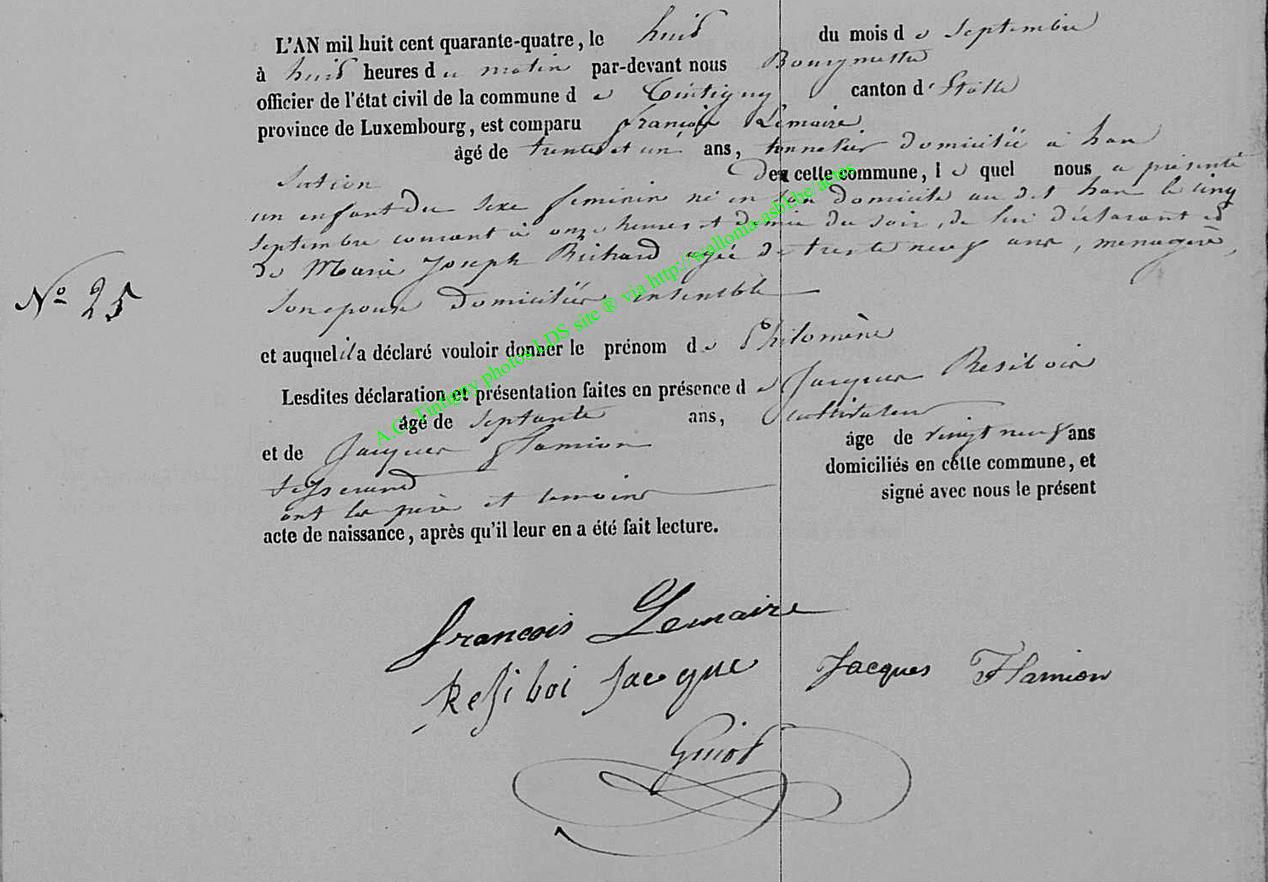 L'AN mil huit cent quarante-quatre, le huit du mois de Septembre
à huit heures du matin par-devant nous
officier de l'état civil de la commune de Tintigny canton d'Etalle
province de Luxembourg, est comparu françois Lemaire
âgé de trente et un ans, tonnelier domicilié à han
section de cette commune, lequel nous a présenté
un enfant du sexe feminin né en son domicile au dit han le cinq
Septembre courant à onze heures et demie du soir, de lui déclarant et
de Marie Joseph Richard agée de trente neuf ans, menagère,
son épouse domiciliés ensemble
et auquel il a déclaré vouloir donner le prénom de Philomène
Lesdites déclaration et présentation faites en présence de Jacques Resiboix
âgé de septante ans, cultivateur
et de Jacques Flamion âge de vingt neuf ans
tisserand domiciliés en cette commune, et
ont les père et temoins signé avec nous le présent
acte de naissance, après qu'il leur en a été fait lecture.
N° 25
A.C. Tintigny photos LDS site ® via http://wallonia-asbl.be/actes
francois Lemaire
Resiboi Jacque Jacques Flamion